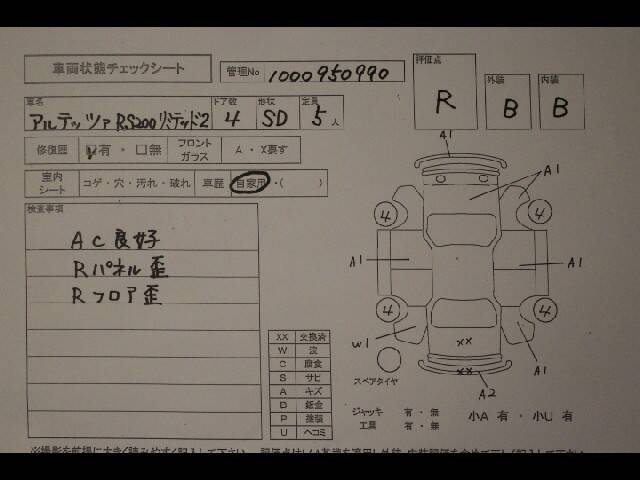 車両状態チェックシート
管理No 1000950990
評価点 R
外装 B
内装 B
車名 アルテッツァ RS200 リミテッド2
ドア数 4
形状 SD
定員 5 人
修復歴 有・無
フロントガラス A・X要す
室内シート コゲ・穴・汚れ・破れ
車歴 自家用・( )
検査事項
AC良好
Rパネル歪
Rフロア歪
XX 交換済
W 波
C 腐食
S サビ
A キズ
B 鈑金
P 塗装
U ヘコミ
A1
A1
4
4
A1
A1
4
4
W1
XX
XX
A1
A2
スペアタイヤ
ジャッキ 有・無
工具 有・無
小A 有・小U 有